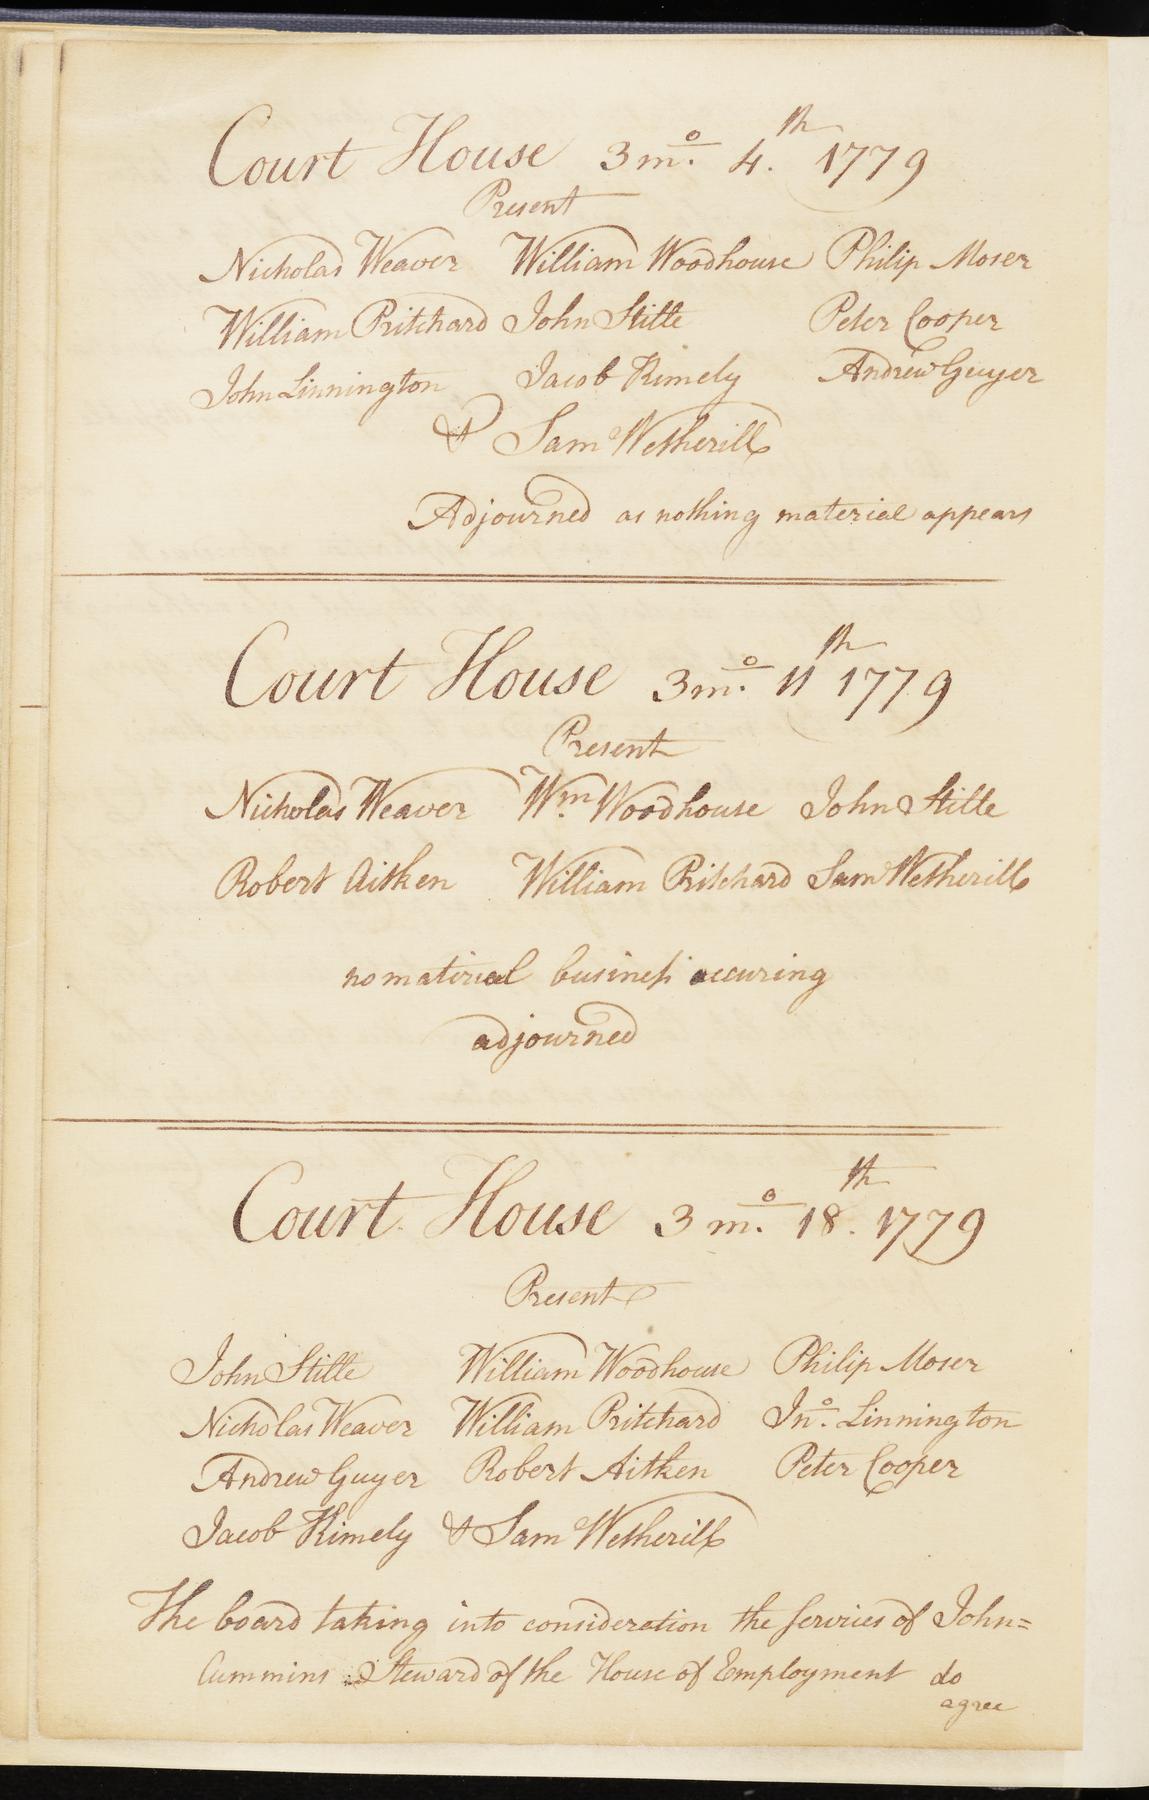 Court House 3 mo. 4.th 1779
Present
Nicholas Weaver William Woodhouse Philip Moser
William Pritchard John Stille Peter Cooper
John Linnington Jacob Kimely Andrew Guyer
& Sam Wetherill
Adjourned as nothing material appears
Court House 3 mo. 11th 1779
Present
Nicholas Weaver Wm. Woodhouse John Stille
Robert Aitken William Pritchard Sam Wetherill
no material business occuring
adjourned
Court House 3 mo. 18.th 1779
Present
John Stille William Woodhouse Philip Moser
Nicholas Weaver William Pritchard Jno. Linnington
Andrew Guyer Robert Aitken Peter Cooper
Jacob Kimely & Sam Wetherill
The board taking into consideration the services of John=
Cummins Steward of the House of Employment do
agree